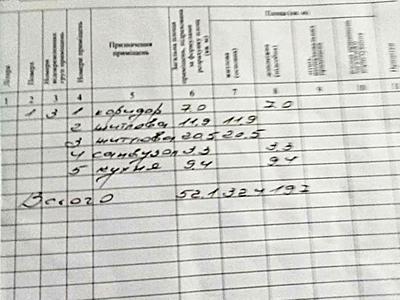 Літера
Поверх
Номери відокремлених груп приміщень
Номери приміщень
Призначення приміщень
Загальна площа приміщень, підрахована за формулами розрахунку площ (кв. м)
Площа (кв. м)
житлова (основна)
допоміжна (підсобна)
1 2 3 4 5 6 7 8 9 10
1 3 1 коридор 7.0 7.0
2 житлова 11,9 11,9
3 житлова 20,5 20,5
4 санвузол 3.3 3.3
5 кухня 9.4 9.4
Всього 52.1 32.4 19.7